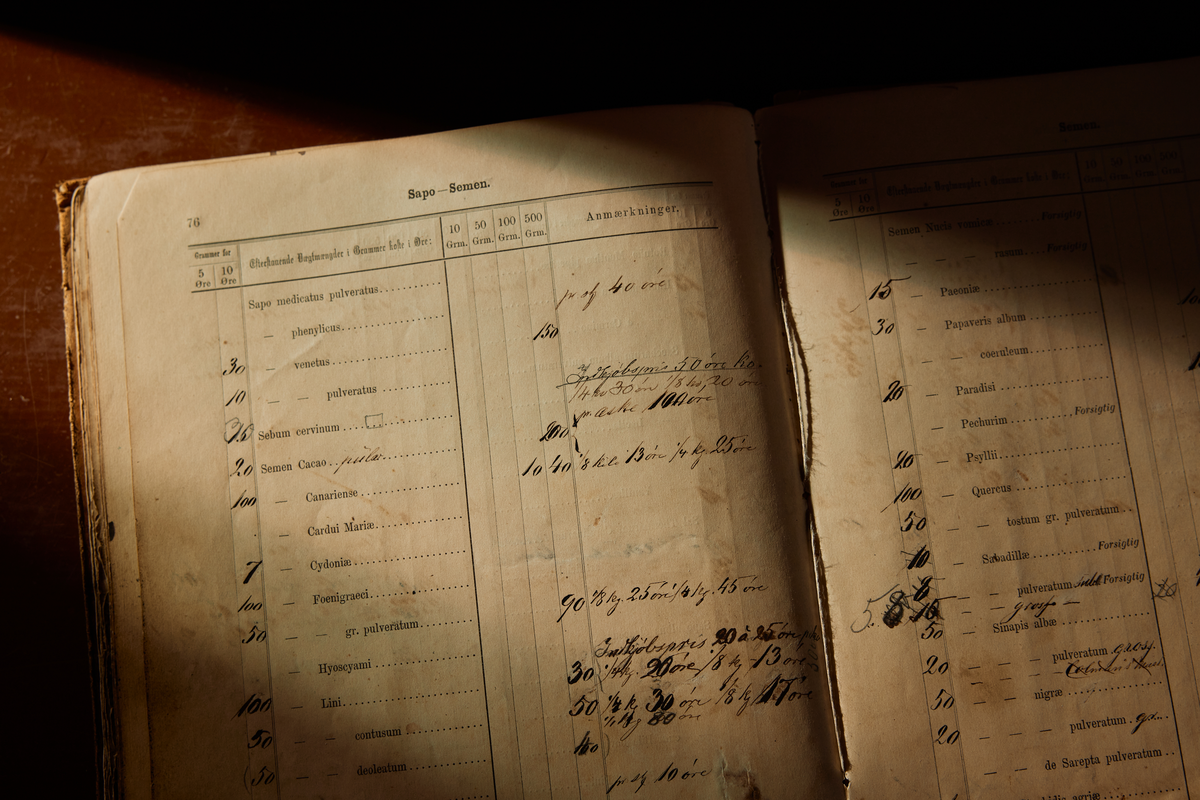 76
Sapo—Semen.
Grammer for
5 Øre
10 Øre
Efterstaaende Vægtmængder i Grammer koste i Øre:
10 Grm.
50 Grm.
100 Grm.
500 Grm.
Anmærkninger.
Sapo medicatus pulveratus 40 øre
— phenylicus 150
30 — venetus
Indkjøbspris 50 øre Ko.
10 — — pulveratus
æske, 100 øre
Sebum cervinum 200
20 Semen Cacao 10 40 1/8 kilo 13 øre 1/4 kg. 25 øre
100 — Canariense
— Cardui Mariæ
7 — Cydoniæ
100 — Foenigraeci 90 1/8 kg. 25 øre 1/4 kg. 45 øre
50 — — gr. pulveratum
Indkjøbspris 20 à 25 øre
Hyoscyami 30 1/4 kg. 20 øre 1/8 kg 13 øre
100 — Lini 50 1/4 kg 30 øre 1/8 kg 17 øre
80 øre
50 — — contusum 40
(50 — — deoleatum
10 øre
Semen.
Grammer for
5 Øre
10 Øre
Efterstaaende Vægtmængder i Grammer koste i Øre:
10 Grm.
50 Grm.
100 Grm.
500 Grm.
Semen Nucis vomicæ Forsigtig
— rasum Forsigtig
15 — Paeoniæ
30 — Papaveris album
— — coeruleum
20 — Paradisi
— Pechurim Forsigtig
20 — Psyllii
100 — Quercus
50 — — tostum gr. pulveratum
10 — Sabadillæ Forsigtig
8 — — pulveratum Forsigtig
5. 20
50 — Sinapis albæ
20 — — — pulveratum gross.
50 — — nigræ
20 — — — pulveratum
— — de Sarepta pulveratum